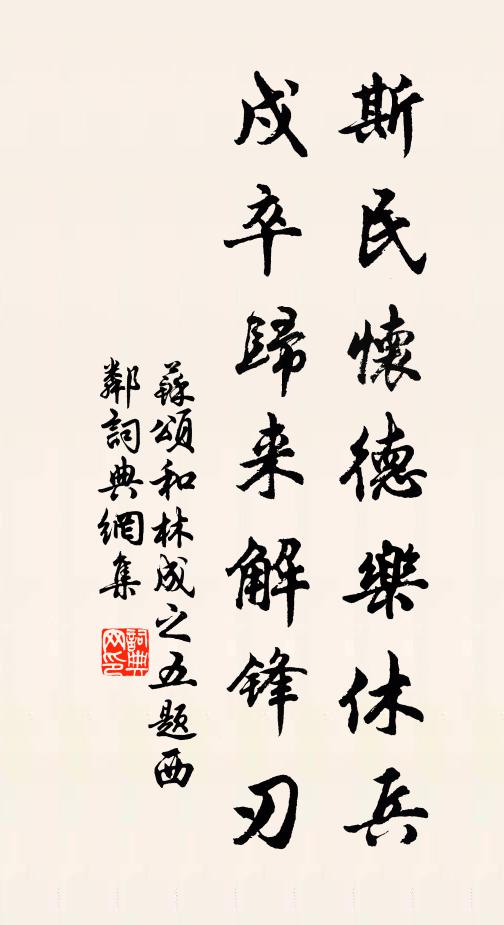 斯民懷德樂休兵
戍卒歸来解锋刃
蘇頌和林成之五题西
鄰詞典網集
詞典
网印